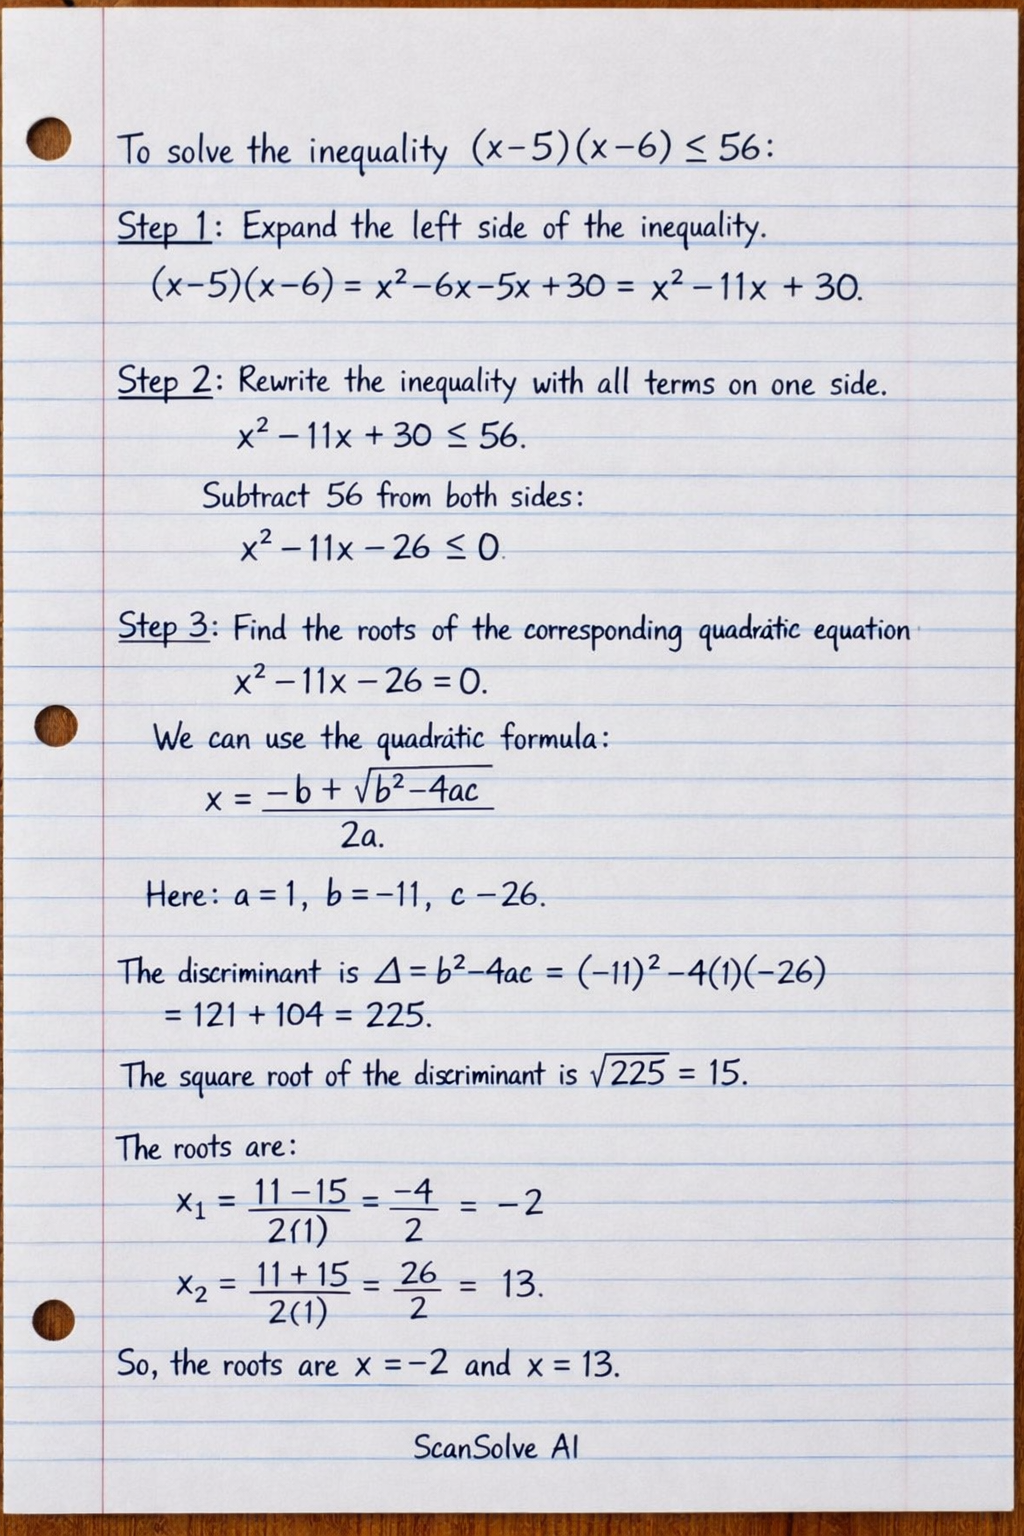 To solve the inequality (x-5)(x-6) ≤ 56:
Step 1: Expand the left side of the inequality.
(x-5)(x-6) = x²-6x-5x+30 = x² - 11x + 30.
Step 2: Rewrite the inequality with all terms on one side.
x² - 11x + 30 ≤ 56.
Subtract 56 from both sides:
x² - 11x - 26 ≤ 0.
Step 3: Find the roots of the corresponding quadratic equation
x² - 11x - 26 = 0.
We can use the quadratic formula:
x = (-b + √(b²-4ac)) / 2a.
Here: a = 1, b = -11, c - 26.
The discriminant is Δ = b²-4ac = (-11)² - 4(1)(-26)
= 121 + 104 = 225.
The square root of the discriminant is √225 = 15.
The roots are:
x₁ = (11 - 15) / 2(1) = -4/2 = -2
x₂ = (11 + 15) / 2(1) = 26/2 = 13.
So, the roots are x = -2 and x = 13.
ScanSolve AI